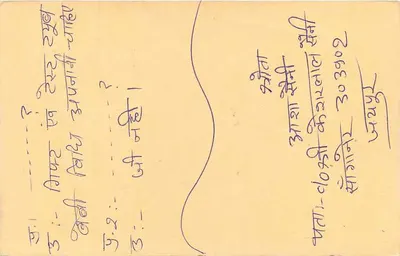 प्र.1 ------?
उ:- गिफ्ट टेस्ट ट्यूब
बेबी विधि अपनानी चाहिए
प्र.2:- ------?
उ:- जी नहीं।
श्रोता
आशा सैनी
पता:- c/o श्री केशरलाल सैनी
सांगानेर 303902
जयपुर